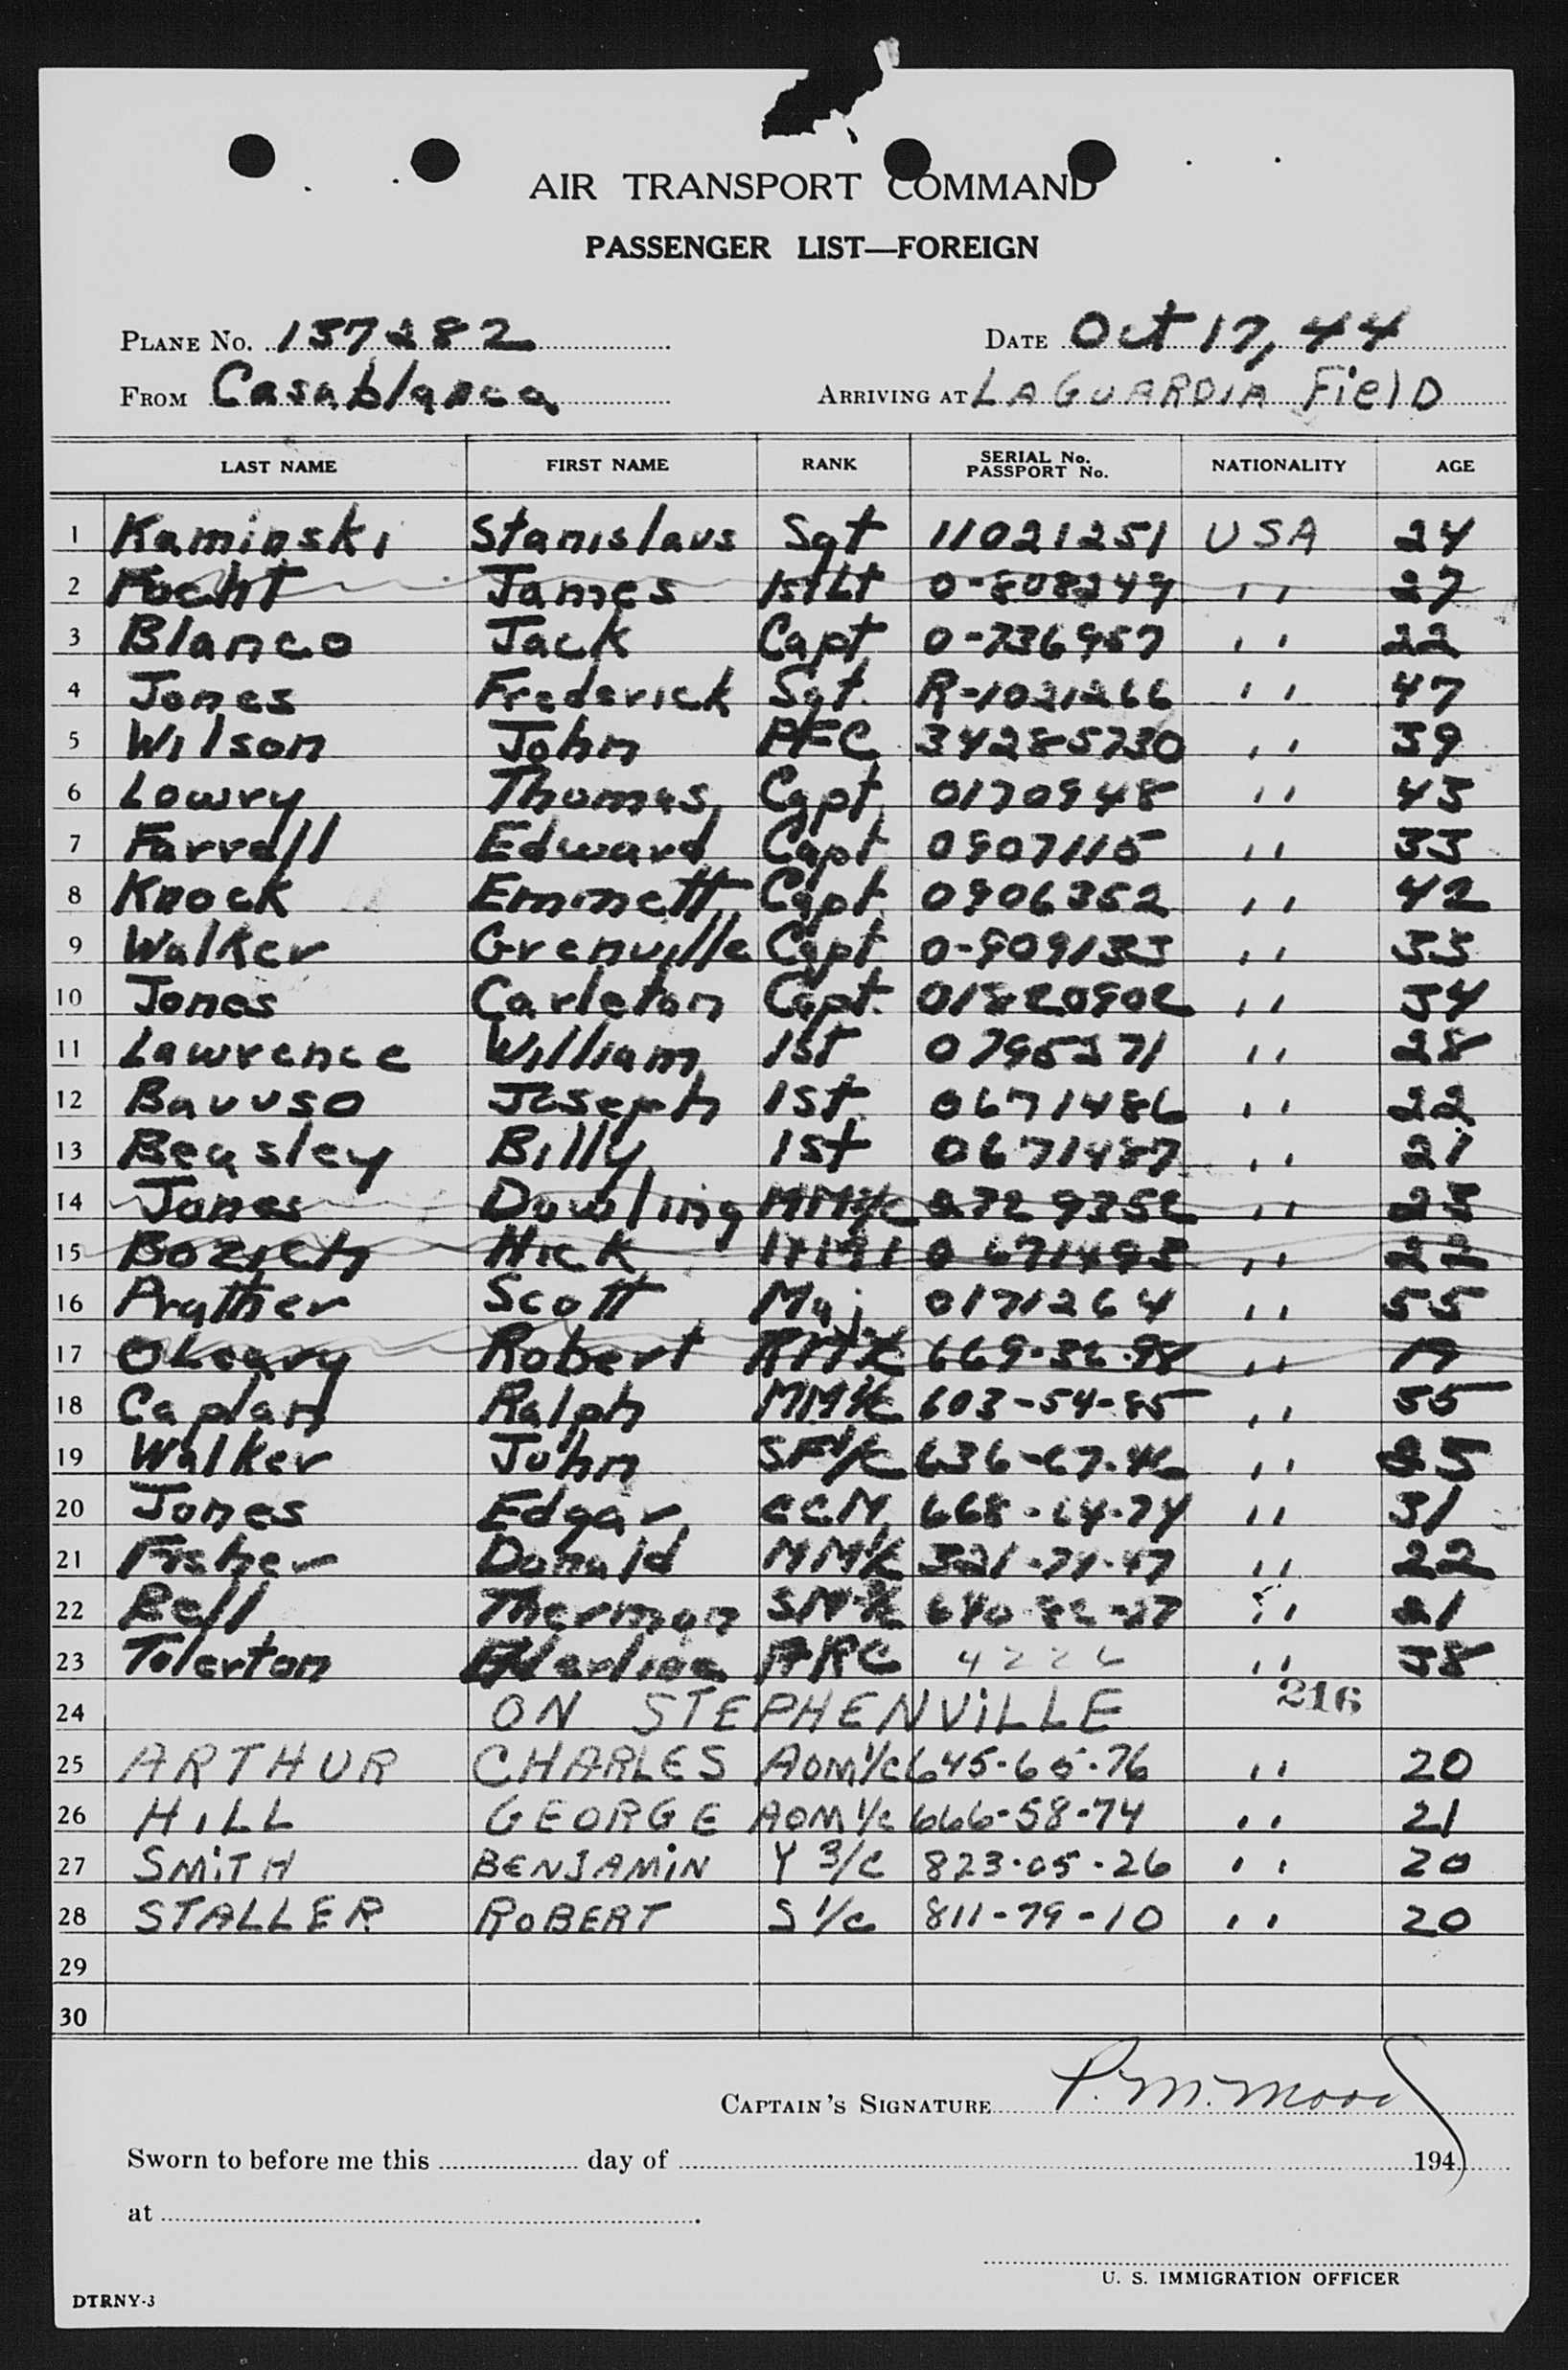 AIR TRANSPORT COMMAND
PASSENGER LIST—FOREIGN
PLANE No. 157282 DATE Oct 17, 44
FROM Casablanca ARRIVING AT LAGUARDIA FIELD
LAST NAME FIRST NAME RANK SERIAL No. PASSPORT No. NATIONALITY AGE
1 Kaminski Stanislaus Sgt 11021251 USA 24
2 Focht James 1st Lt 0-808249 " 27
3 Blanco Jack Capt 0-736957 " 22
4 Jones Frederick Sgt. R-1021266 " 47
5 Wilson John PFC 34285730 " 39
6 Lowry Thomas Capt 0170948 " 43
7 Farrell Edward Capt 0907115 " 33
8 Knock Emmett Capt 0906352 " 42
9 Walker Grenville Capt 0-909133 " 33
10 Jones Carleton Capt. 01820902 " 34
11 Lawrence William 1st 0795371 " 28
12 Bavuso Joseph 1st 0671486 " 22
13 Beasley Billy 1st 0671487 " 21
14 Jones Dowling MM1/c 2729352 " 23
15 Bozich Nick 0671495 " 22
16 Prather Scott Maj 0171264 " 55
17 OLeary Robert 669-32-98 " 19
18 Caplan Ralph MM1/c 603-54-85 " 55
19 Walker John SF1/c 636-67-46 " 25
20 Jones Edgar CCM 668-64-74 " 31
21 Fisher Donald MM1/c 321-74-47 " 22
22 Bell Therman 640-82-27 " 21
23 Tolerton ARC 4226 " 38
216
24 ON STEPHENVILLE
25 ARTHUR CHARLES AOM1/c 645-65-76 " 20
26 HILL GEORGE AOM1/c 666-58-74 " 21
27 SMITH BENJAMIN Y 3/C 823-05-26 " 20
28 STALLER ROBERT S 1/c 811-79-10 " 20
29
30
CAPTAIN'S SIGNATURE P. M. Mood
Sworn to before me this day of 194
at .
U. S. IMMIGRATION OFFICER
DTRNY-3